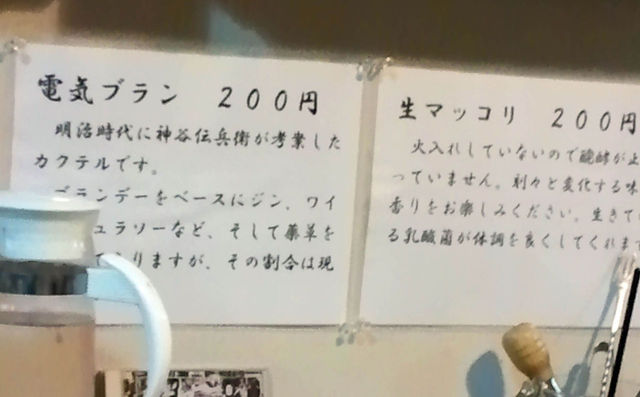 電気ブラン 200円
明治時代に神谷伝兵衛が考案した
カクテルです。
ブランデーをベースにジン、ワイ
ュラソーなど、そして薬草を
りますが、その割合は現
生マッコリ 200円
火入れしていないので醗酵が止
っていません。刻々と変化する味
香りをお楽しみください。生きて
る乳酸菌が体調を良くしてくれま